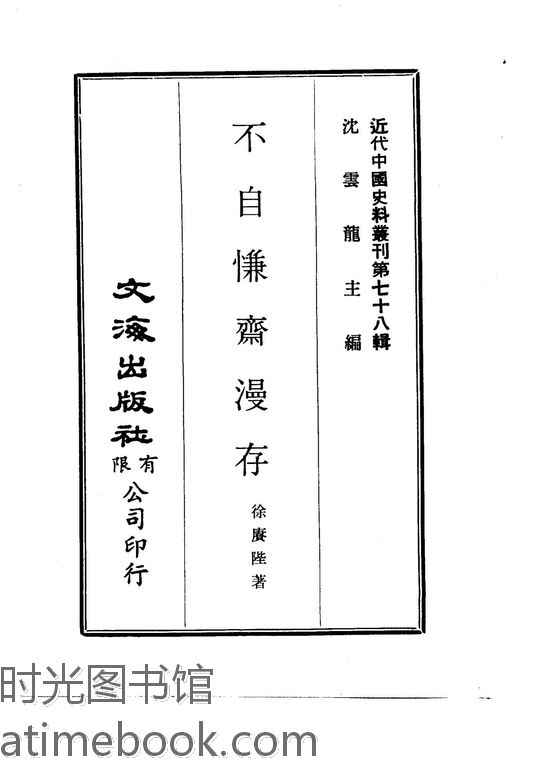 近代中國史料叢刊第七十八輯
沈雲龍主編
不自慊齋漫存
徐賡陛著
文海出版社有限公司印行
时光图书馆
atimebook.com